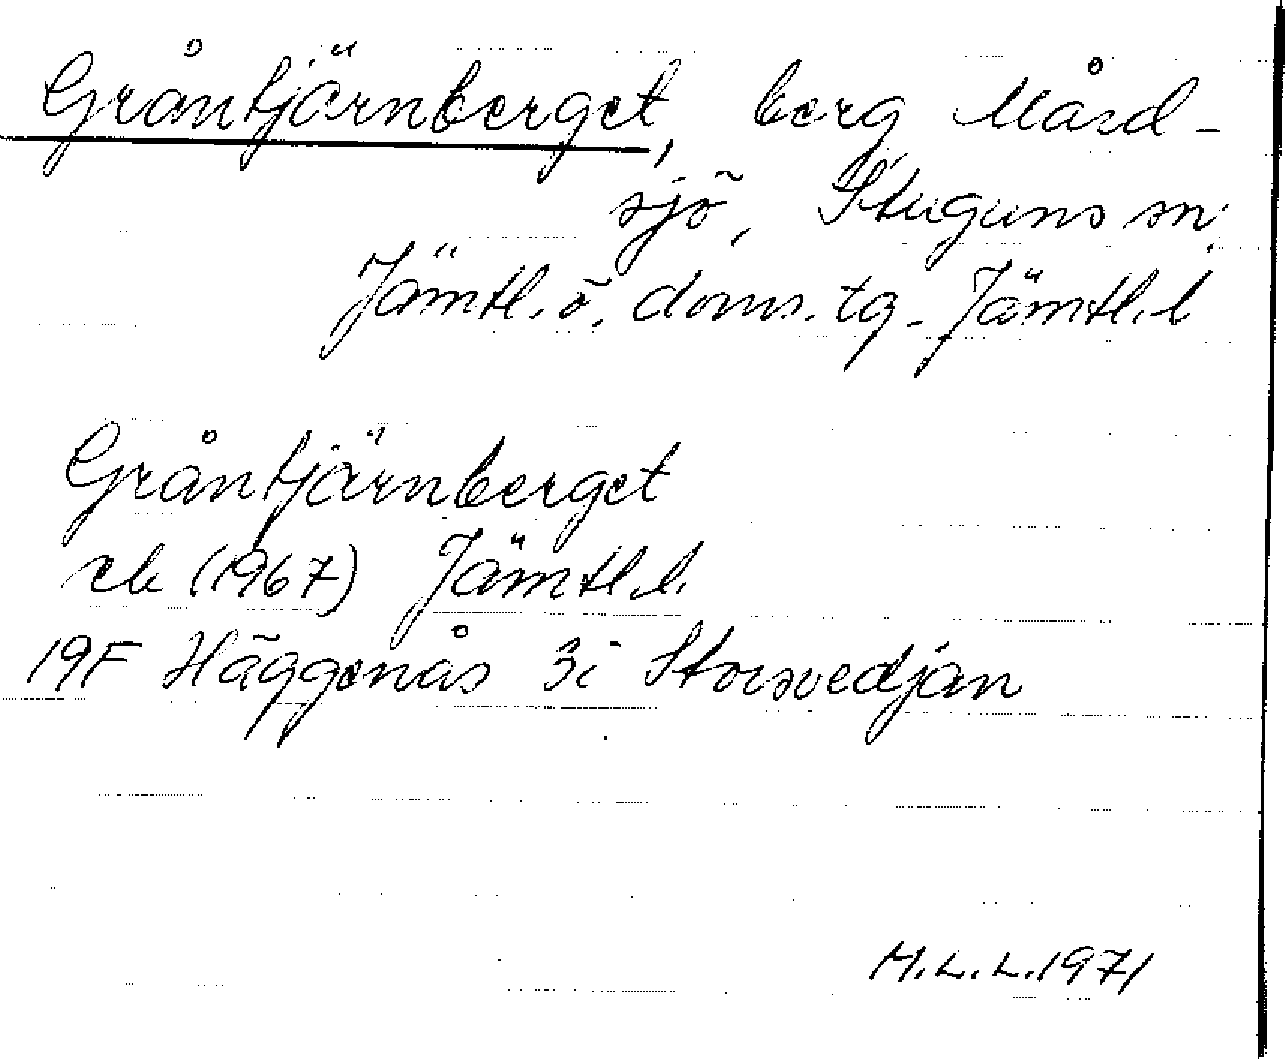 Gråntjärnberget, berg Mård-
sjö, Stuguns sn.
Jämtl. ö. doms. tg. Jämtl. l
Gråntjärnberget
ek (1967) Jämtl. l.
19F Häggenås 3i Storsvedjan
M.L.L. 1971